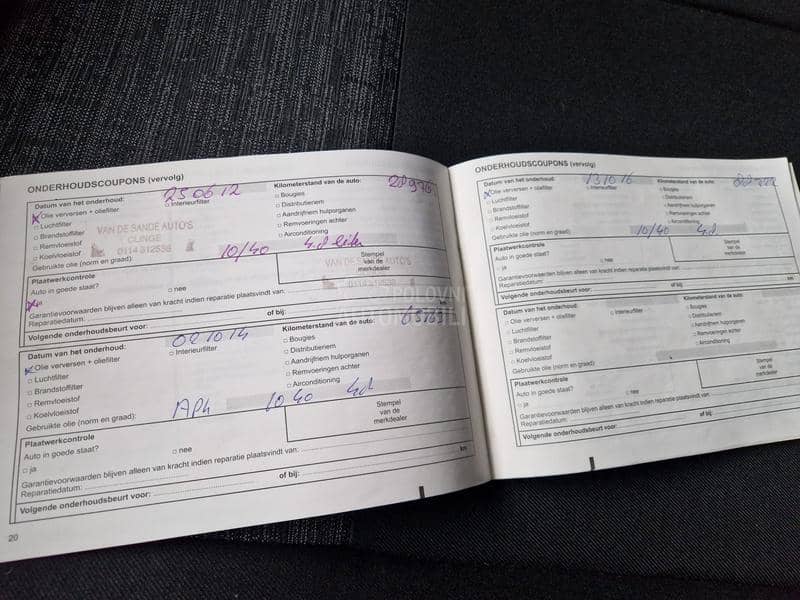 ONDERHOUDSCOUPONS (vervolg)
Datum van het onderhoud: 250612
Kilometerstand van de auto: 28976
Olie verversen + oliefilter
Interieurfilter
Bougies
Luchtfilter
Distributieriem
Brandstoffilter
Aandrijfriem hulporganen
Remvloeistof
Remvoeringen achter
Koelvloeistof
Airconditioning
VAN DE SANDE AUTO'S
CLINGE
0114 312536
Gebruikte olie (norm en graad): 10/40
Plaatwerkcontrole
Stempel
van de
merkdealer
VAN DE SANDE AUTO'S
Auto in goede staat?
nee
ja
Garantievoorwaarden blijven alleen van kracht indien reparatie plaatsvindt van:
Reparatiedatum:
Volgende onderhoudsbeurt voor:
of bij:
Datum van het onderhoud: 021014
Kilometerstand van de auto:
Olie verversen + oliefilter
Interieurfilter
Bougies
Luchtfilter
Distributieriem
Brandstoffilter
Aandrijfriem hulporganen
Remvloeistof
Remvoeringen achter
Koelvloeistof
Airconditioning
Gebruikte olie (norm en graad): 10 40
Plaatwerkcontrole
Stempel
van de
merkdealer
Auto in goede staat?
nee
ja
Garantievoorwaarden blijven alleen van kracht indien reparatie plaatsvindt van:
Reparatiedatum:
km
Volgende onderhoudsbeurt voor:
of bij:
20
ONDERHOUDSCOUPONS (vervolg)
Datum van het onderhoud: 131016
Kilometerstand van de auto:
Olie verversen + oliefilter
Interieurfilter
Bougies
Luchtfilter
Distributieriem
Brandstoffilter
Aandrijfriem hulporganen
Remvloeistof
Remvoeringen achter
Koelvloeistof
Airconditioning
Gebruikte olie (norm en graad): 10/40
Plaatwerkcontrole
Stempel
van de
merkdealer
Auto in goede staat?
nee
ja
Garantievoorwaarden blijven alleen van kracht indien reparatie plaatsvindt van:
Reparatiedatum:
km
Volgende onderhoudsbeurt voor:
of bij:
Datum van het onderhoud:
Kilometerstand van de auto:
Olie verversen + oliefilter
Interieurfilter
Bougies
Luchtfilter
Distributieriem
Brandstoffilter
Aandrijfriem hulporganen
Remvloeistof
Remvoeringen achter
Koelvloeistof
Airconditioning
Gebruikte olie (norm en graad):
Plaatwerkcontrole
Stempel
van de
merkdealer
Auto in goede staat?
nee
ja
Garantievoorwaarden blijven alleen van kracht indien reparatie plaatsvindt van:
Reparatiedatum:
km
Volgende onderhoudsbeurt voor:
of bij: